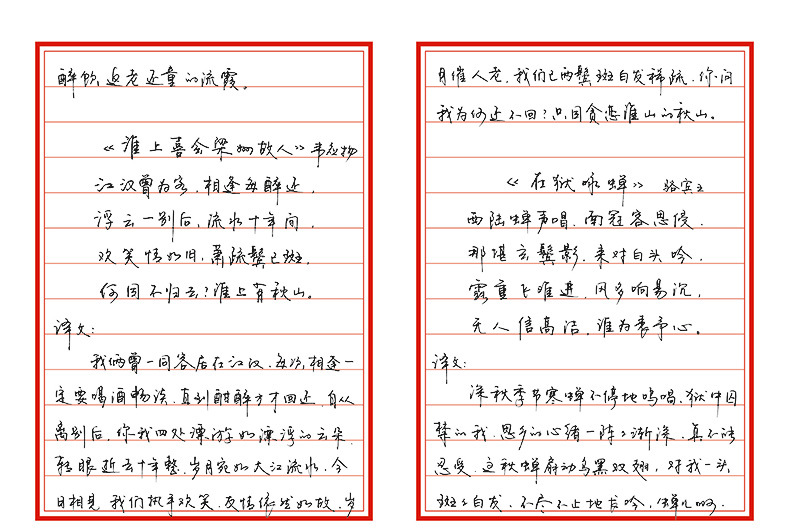 醉饮返老还童的流霞。
《淮上喜会梁州故人》韦应物
江汉曾为客,相逢每醉还,
浮云一别后,流水十年间,
欢笑情如旧,萧疏鬓已斑,
何因不归去?淮上有秋山。
译文:
我俩曾一同客居在江汉,每次相逢一
定要喝酒畅谈,直到酣醉方才回还,自从
离别后,你我四处漂游如漂浮的云朵
转眼近云十年整,岁月宛如大江流水,今
日相见,我们执手欢笑,友情依然如故,岁
月催人老,我们已两鬓斑白发稀疏,你问
我为何还不回?只因贪恋淮山的秋山。
《在狱咏蝉》骆宾王
西陆蝉声唱,南冠客思侵,
那堪玄鬓影,来对白头吟,
露重飞难进,风多响易沉,
无人信高洁,谁为表予心。
译文:
深秋季节寒蝉不停地鸣唱,狱中囚
禁的我,思乡的心绪一阵阵渐深,真不能
忍受,这秋蝉扇动乌黑双翅,对我一头
斑斑白发,不尽不止地长吟,蝉儿啊,